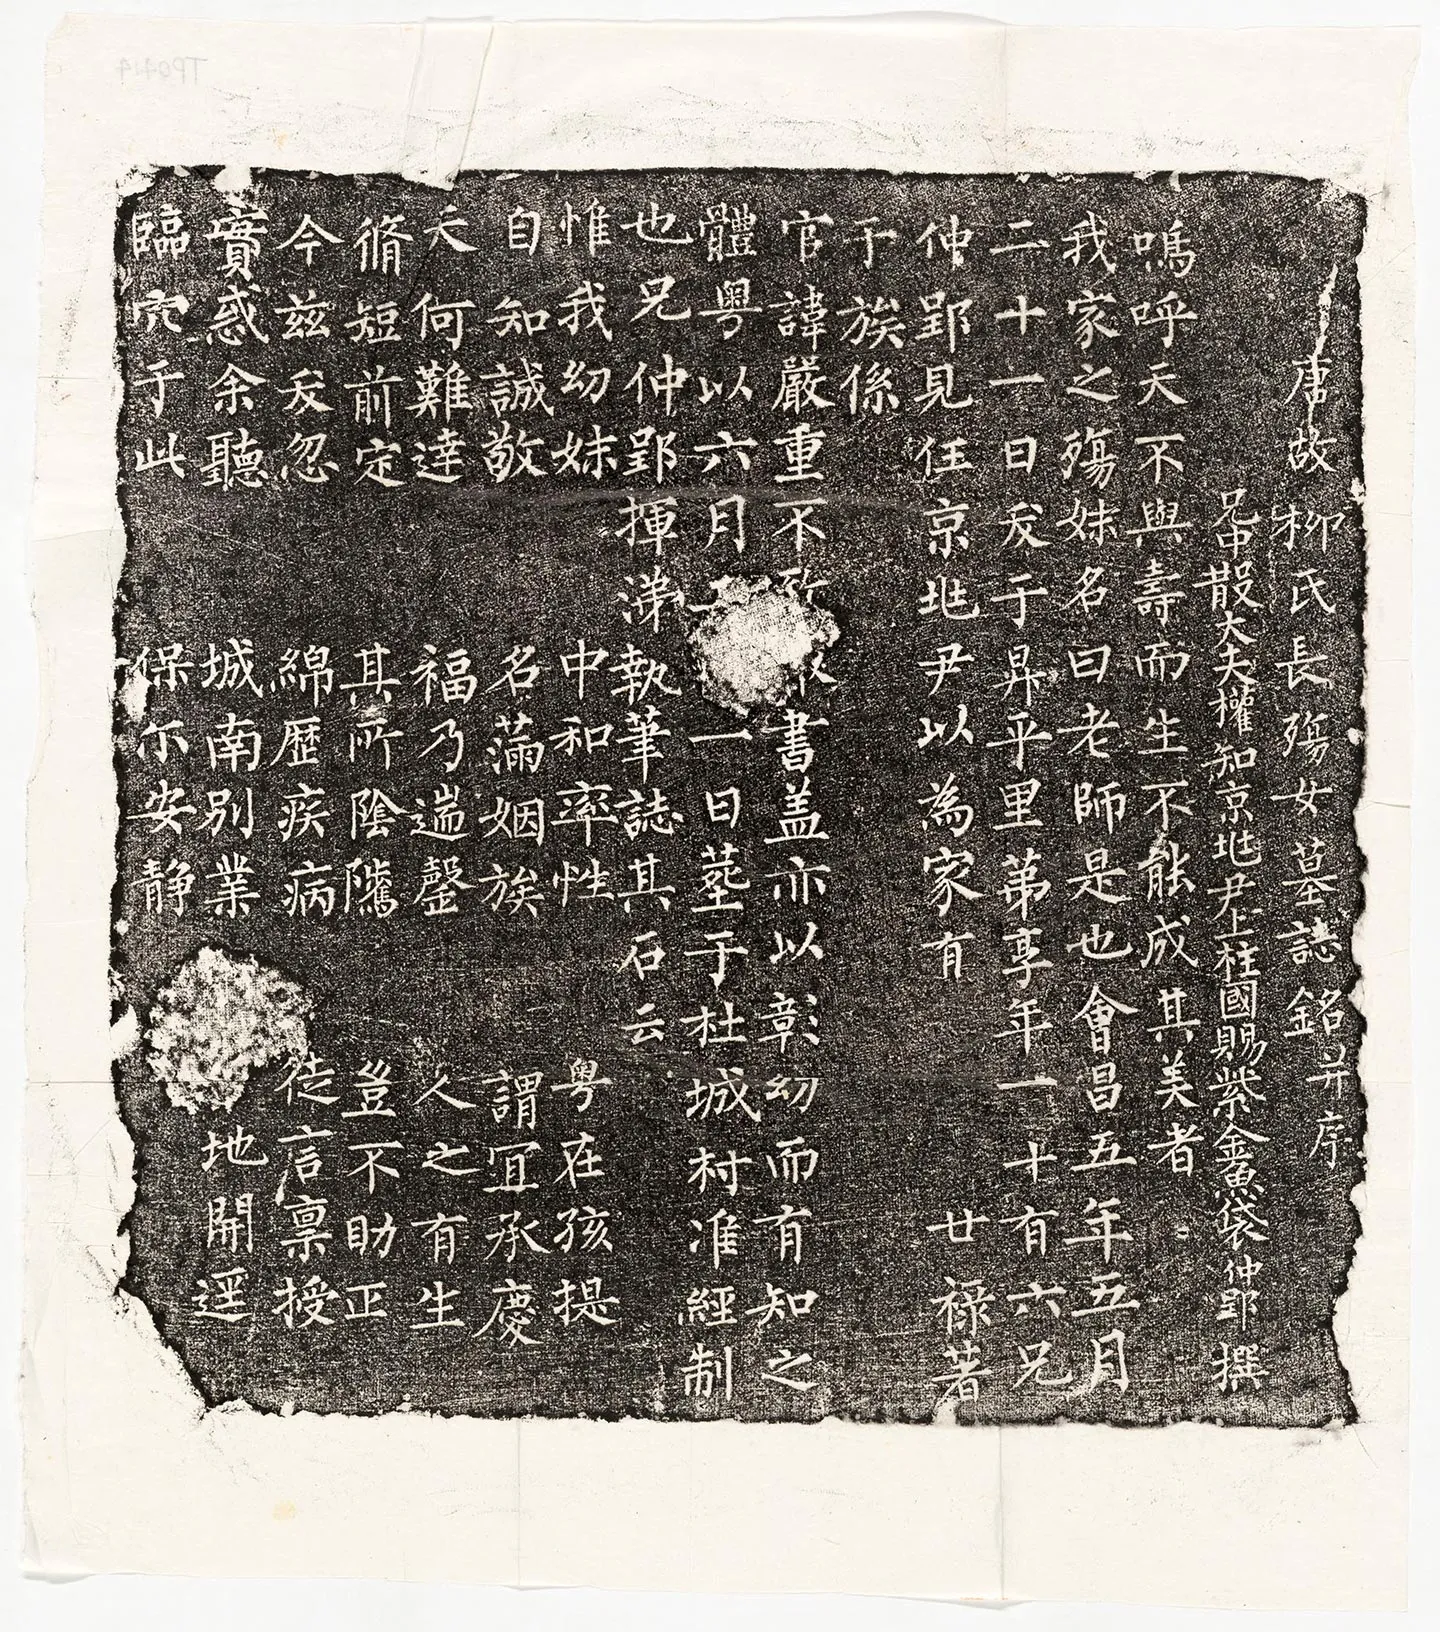 唐故柳氏長殤女墓誌銘并序
兄中散大夫權知京兆尹上柱國賜紫金魚袋仲郢撰
嗚呼天不與壽而生不能成其美者
我家之殤妹名曰老師是也會昌五年五月
二十一日夭于昇平里第享年一十有六兄
仲郢見任京兆尹以為家有 廿祿著
于族係
官諱嚴重不 書盖亦以彰幼而有知之
體粤以六月 一日塟于杜城村准經制
也兄仲郢揮涕執筆誌其石云
惟我幼妹 中和率性 粤在孩提
自知誠敬 名滿姻族 謂宜承慶
天何難達 福乃遄罄 人之有生
脩短前定 其所陰騭 豈不助正
今兹夭忽 綿歷疾病 徒言稟授
實惑余聽 城南別業 地開逕
臨穴于此 保尒安静